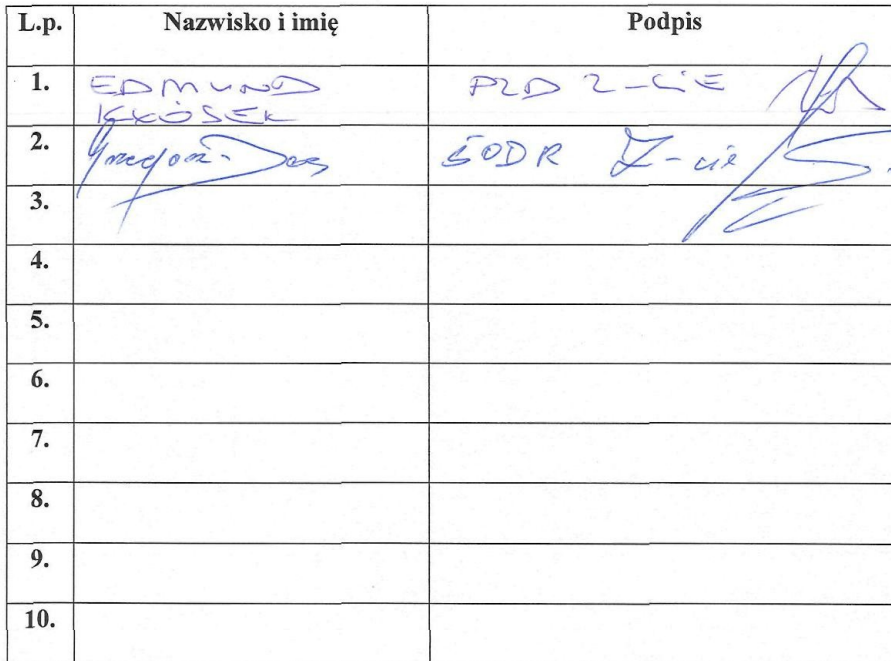 L.p. Nazwisko i imię Podpis
1. EDMUND PZD Z-CIE
KŁÓSEK
2. Grzegorz ŚODR Z-cie
3.
4.
5.
6.
7.
8.
9.
10.